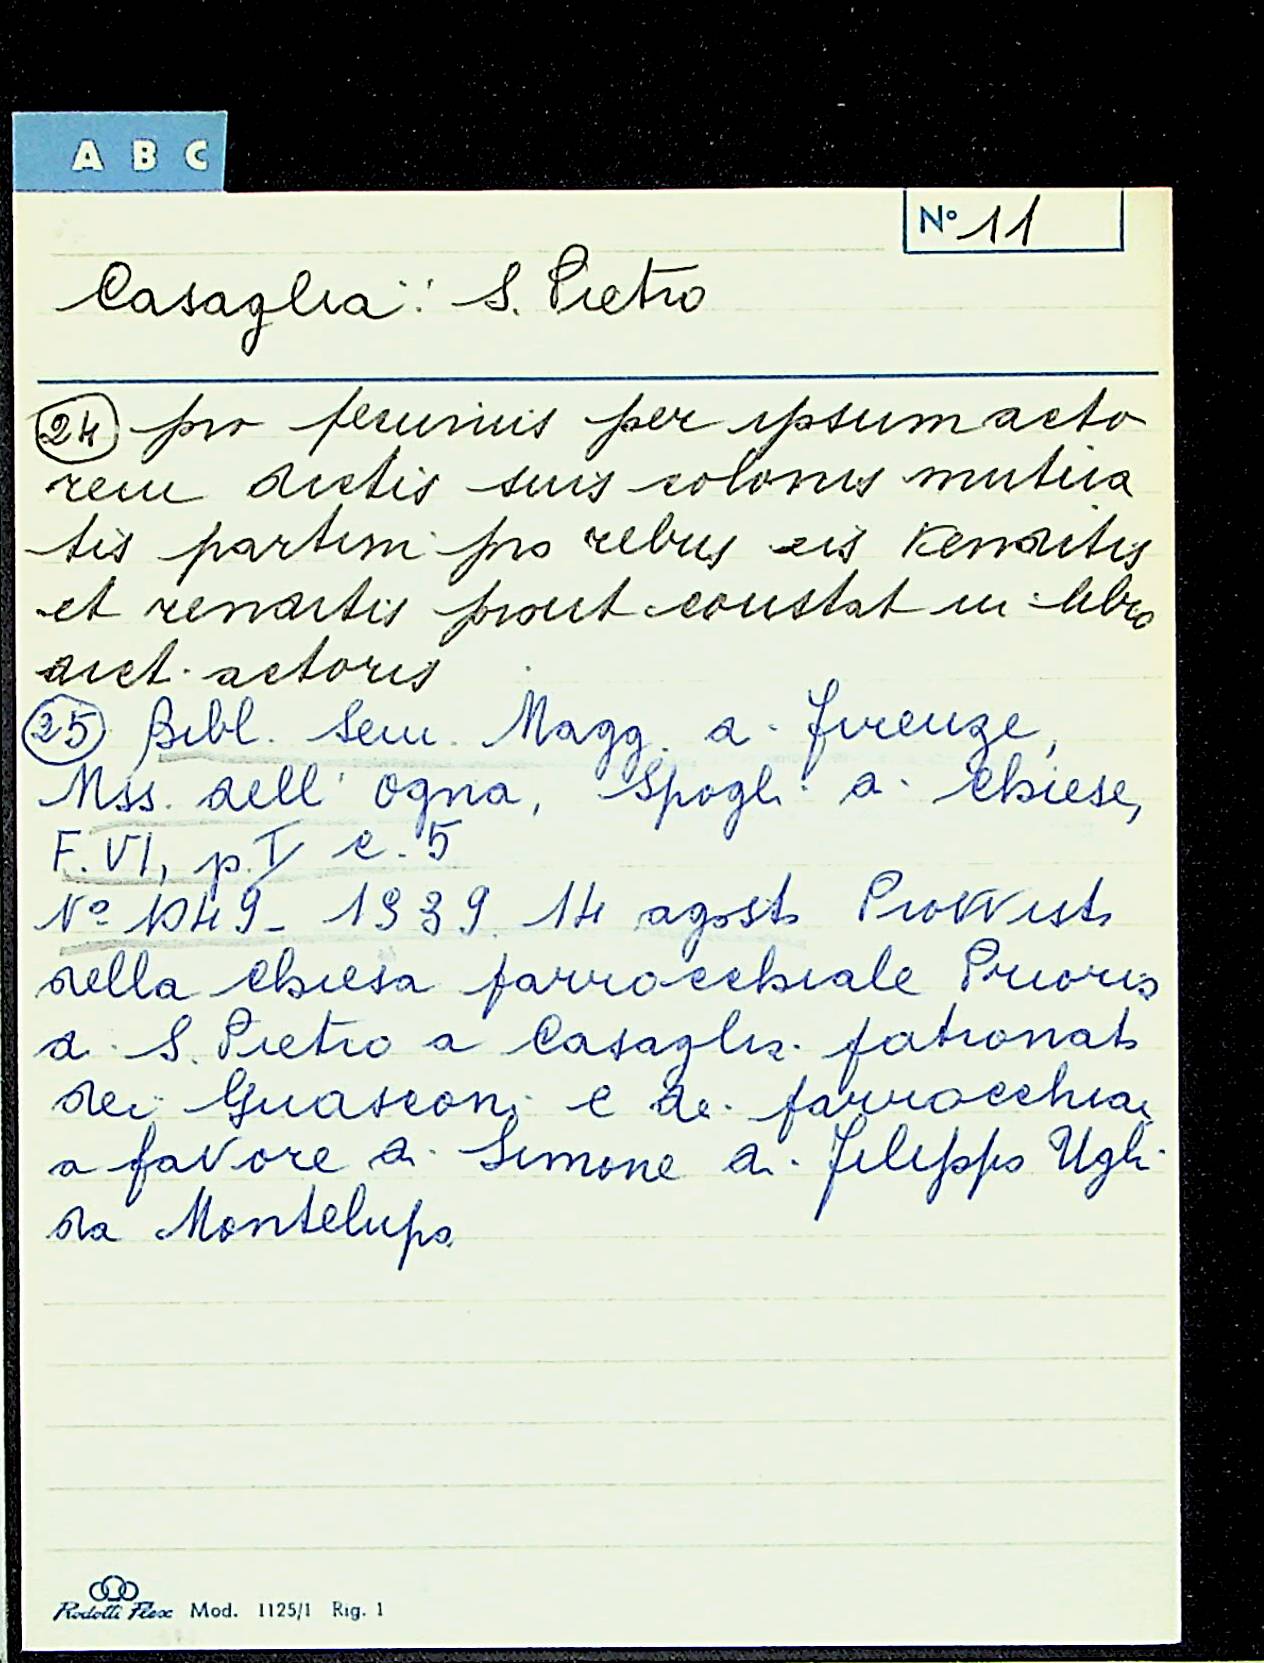 A B C
N° 11
Casaglia: S. Pietro
24 pro pecuniis per ipsum acto
rem dictis suis colonis mutua
tis partim pro rebus eis venditis
et renditis prout constat in libro
dict. actoris
25 Bibl. Sem. Magg. di Firenze,
Mss. dell'Ogna, Spogli di Chiese,
F. VI, p. I c. 5
N° 1049 - 1339. 14 agosto Provvista
della chiesa parrocchiale Prioria
di S. Pietro a Casaglia patronato
dei Guasconi e dei parrocchiani
a favore di Simone di Filippo Ughi
da Montelupo
Rodotti Flex Mod. 1125/1 Rig. 1